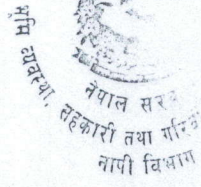 नेपाल सर
भूमि व्यवस्था, सहकारी तथा गरि
नापी विभाग